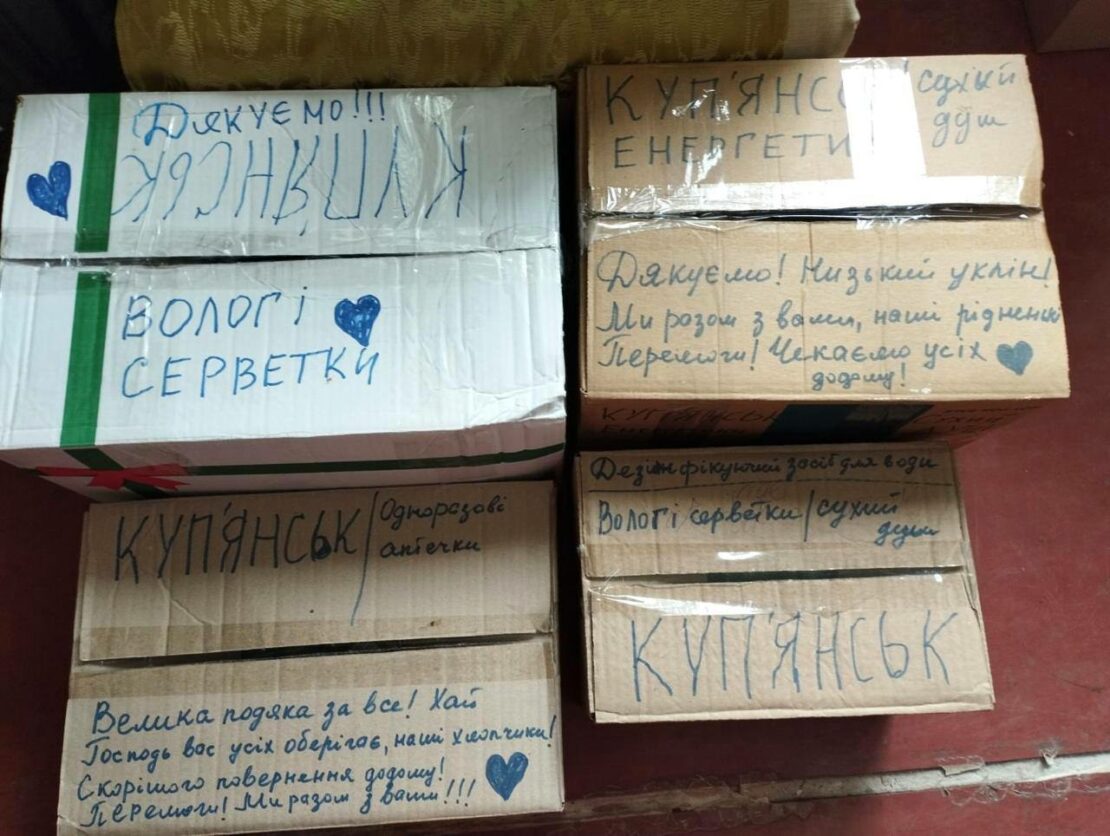 Дякуємо!!!
КУПЯНСЬК
ВОЛОГІ
СЕРВЕТКИ
КУП'ЯНСЬ / сухий
ЕНЕРГЕТИ душ
Дякуємо! Низький уклін!
Ми разом з вами, наші рідненькі
Перемоги! Чекаємо усіх
додому!
КУП'ЯНСЬК
КУП'ЯНСЬК / Одноразові
аптечки
Велика подяка за все! Хай
Господь вас усіх оберігає, наші хлопчики!
Скорішого повернення додому!
Перемоги! Ми разом з вами!!!
Дезінфікуючий засіб для води
Вологі серветки / сухий
душ
КУП'ЯНСЬК